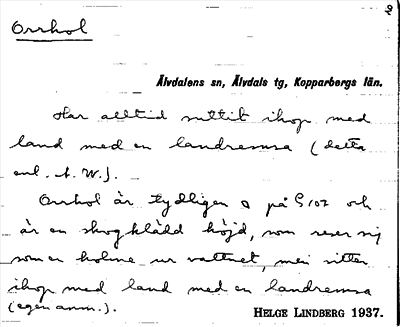 Orrhol
Älvdalens sn, Älvdals tg, Kopparbergs län.
Har alltid suttit ihop med
land med en landremsa (detta
enl. A. W.).
Orrhol är tydligen på S 102 och
är en skogklädd höjd, som reser sig
som en holme ur vattnet, men sitter
ihop med land med en landremsa
(egen anm.).
HELGE LINDBERG 1937.